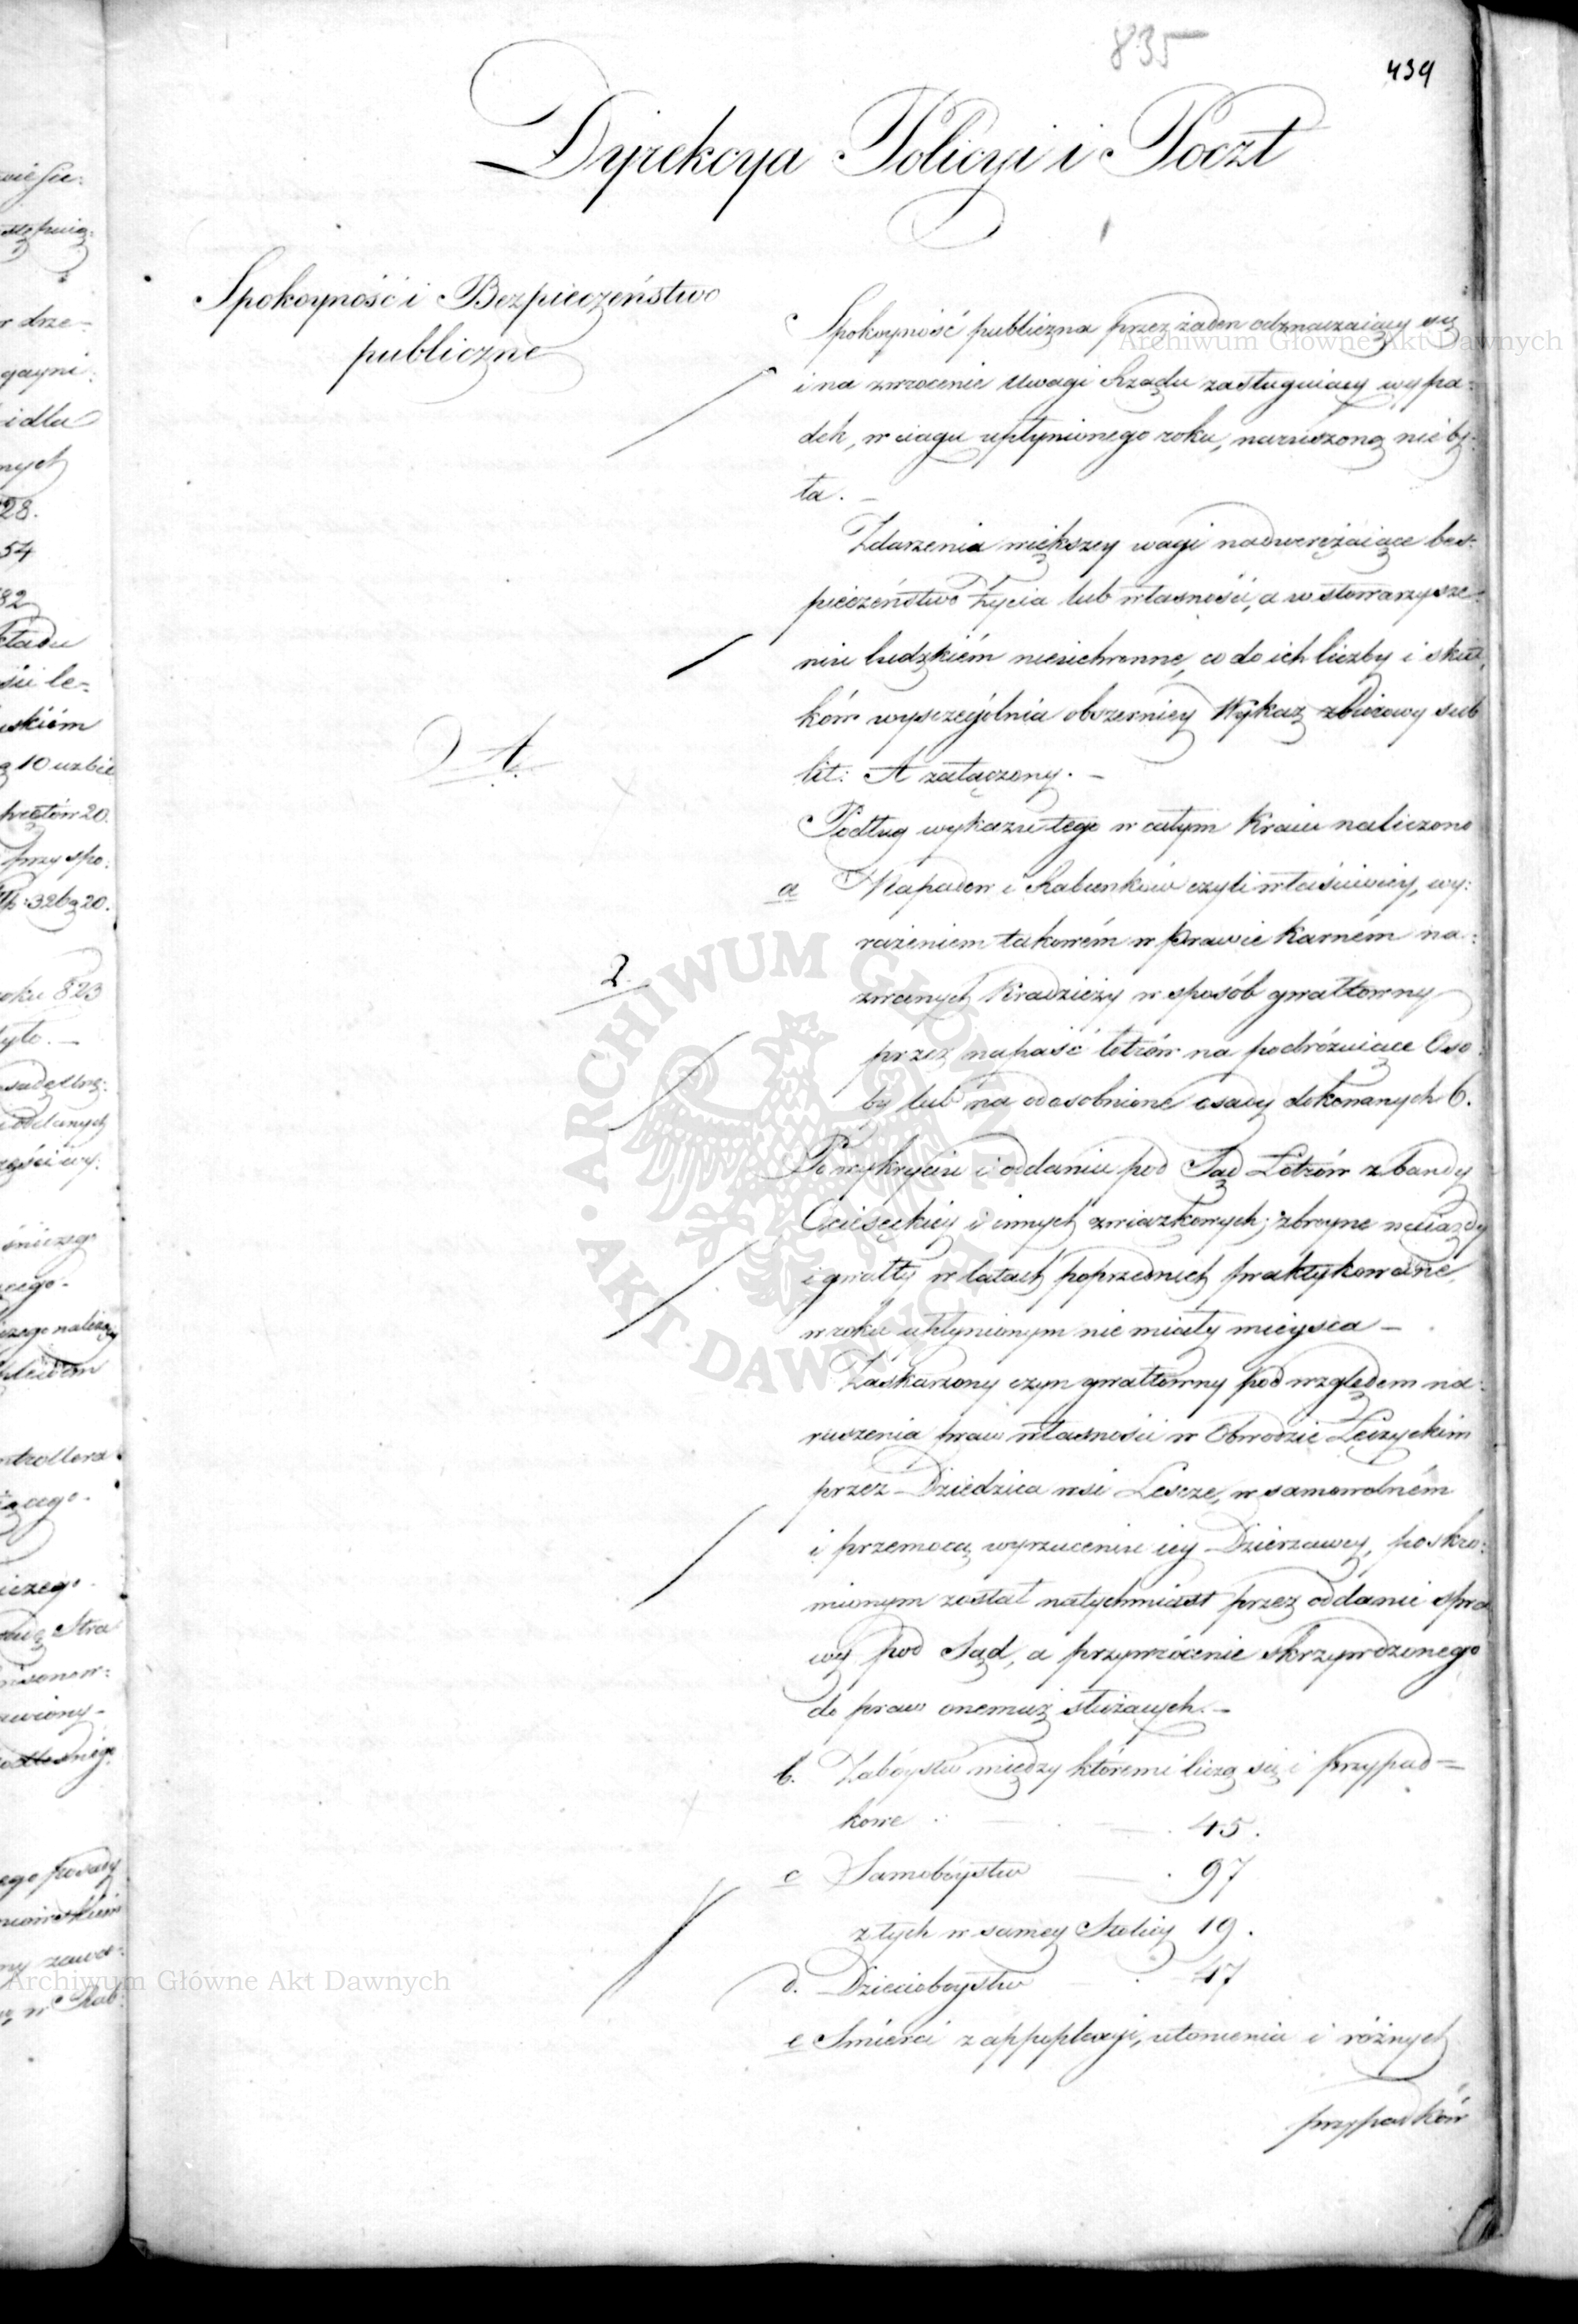 835
439
Dyrekcya Policyi i Poczt
Spokoyność i Bezpieczeństwo
publiczne
Spokoyność publiczna przez żaden odznaczaiący się
i na zwrócenie Uwagi Rządu zasługuiący wypa-
dek, w ciągu upłynionego roku, naruszoną nie by-
ła. —
Zdarzenia większey wagi nadwerężaiące bes-
pieczeństwo życia lub własności, a w stowarzysze-
niu ludzkiém nieuchronne, co do ich liczby i skut-
ków wyszczególnia obszerniey Wykaz zbiorowy sub
lit: A załączony. —
A.
Podług wykazu tego w całym Kraiu naliczono
a Napadów i Rabunków czyli właściwiey, wy-
rażeniem takowém w prawie karném na-
zwanych Kradzieży w sposób gwałtowny
2.
przez napaść łotrów na podróżuiące Oso-
by lub na odosobnione osady dokonanych 6.
Po wykryciu i oddaniu pod Sąd Łotrów z bandy
i innych związkowych; zbroyne naiazdy
i gwałty w latach poprzednich praktykowane,
w roku upłynionym nie miały mieysca —
Zaskarżony czyn gwałtowny pod względem na-
ruszenia praw własności w Obwodzie Łęczyckim
przez Dziedzica wsi Leszcze, w samowolném
i przemocą wyrzuceniu iey Dzierżawcy, poskro-
mionym został natychmiast przez oddanie spra
wy pod Sąd, a przywrócenie skrzywdzonego
do praw onemuż służących. —
b. Zabóystw między któremi liczą się i przypad-
kowe . — . — . 45.
c Samobóystw — . 97
z tych w samey Stolicy 19.
d. Dzieciobóystw . 47
e Śmierci z appoplexyi, utonienia i różnych
przypadków
Archiwum Główne Akt Dawnych
ARCHIWUM GŁÓWNE AKT DAWNYCH
Archiwum Główne Akt Dawnych